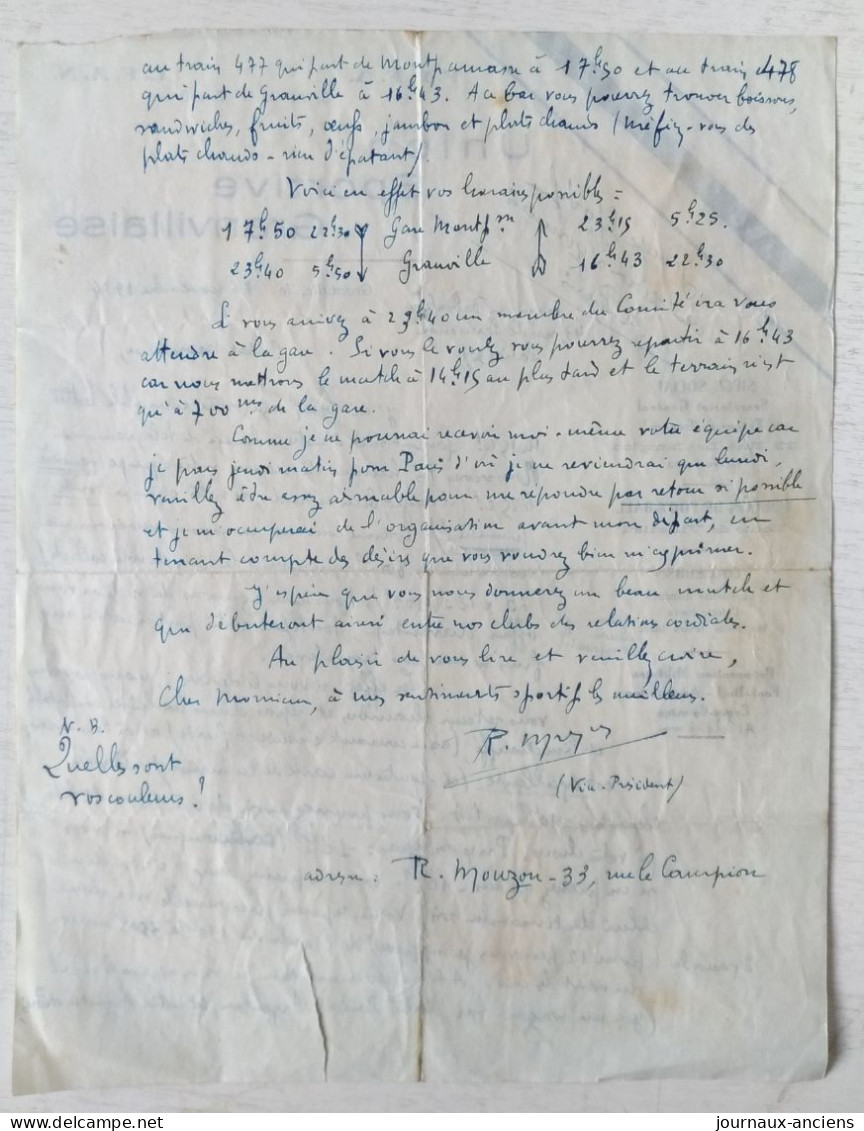 au train 477 qui part de Montparnasse à 17h50 et au train 478
qui part de Granville à 16h43. Au bar vous pourrez trouver boissons,
sandwiches, fruits, œufs, jambon et plats chauds (méfiez-vous des
plats chauds - rien d'épatant).
Voici en effet vos horaires possibles =
17h50 22h30 Gare Montpsse 23h15 5h25.
23h40 5h50 Granville 16h43 22h30
Si vous arrivez à 23h40 un membre du Comité ira vous
attendre à la gare. Si vous le voulez vous pourrez repartir à 16h43
car nous mettrons le match à 14h15 au plus tard et le terrain n'est
qu'à 700 ms de la gare.
Comme je ne pourrai recevoir moi-même votre équipe car
je pars jeudi matin pour Paris d'où je ne reviendrai que lundi,
veuillez être assez aimable pour me répondre par retour si possible
et je m'occuperai de l'organisation avant mon départ, en
tenant compte des désirs que vous voudrez bien m'exprimer.
J'espère que vous nous donnerez un beau match et
que débuteront ainsi entre nos clubs des relations cordiales.
Au plaisir de vous lire et veuillez croire,
Cher Monsieur, à mes sentiments sportifs les meilleurs.
N. B.
Quelles sont
vos couleurs ?
(Vice-Président)
adresse : R. Mouzon - 33, rue le Campion
journaux-anciens